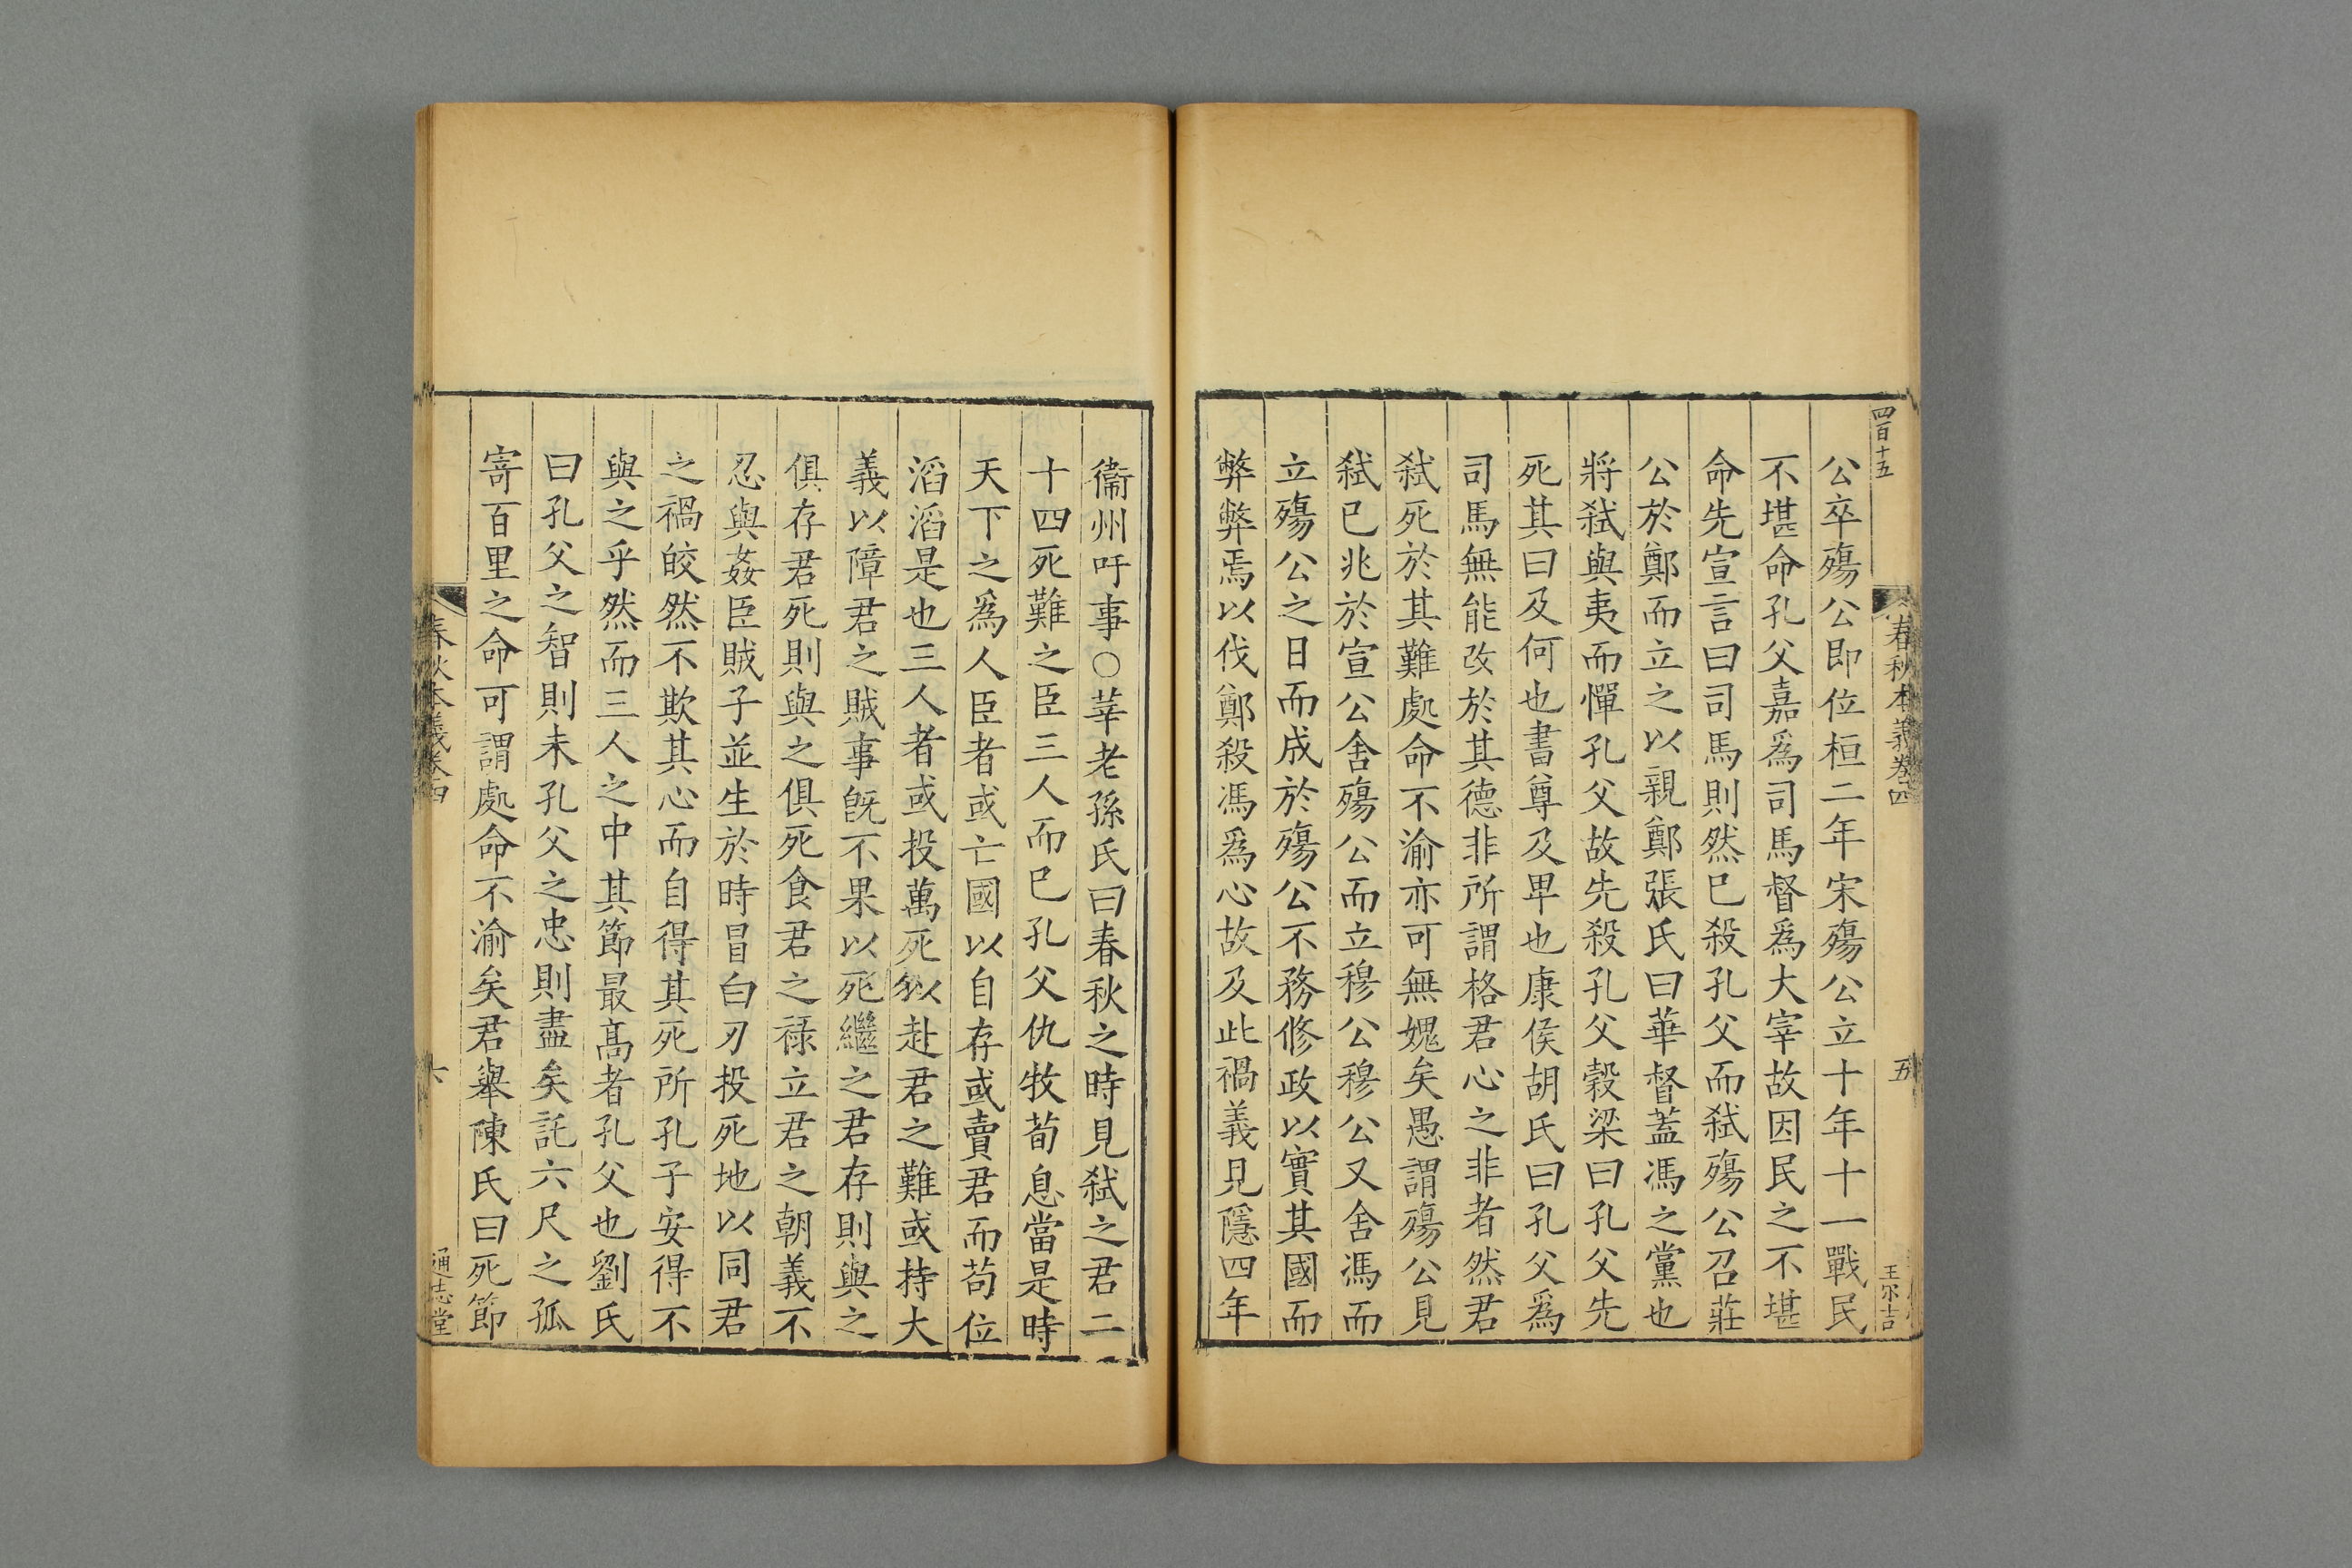 四百十五
春秋本義卷四
五
王尔吉
公卒殤公即位桓二年宋殤公立十年十一戰民
不堪命孔父嘉爲司馬督爲大宰故因民之不堪
命先宣言曰司馬則然已殺孔父而弑殤公召莊
公於鄭而立之以親鄭張氏曰華督蓋馮之黨也
將弑與夷而憚孔父故先殺孔父穀梁曰孔父先
死其曰及何也書尊及卑也康侯胡氏曰孔父爲
司馬無能改於其德非所謂格君心之非者然君
弑死於其難處命不渝亦可無媿矣愚謂殤公見
弑已兆於宣公舍殤公而立穆公穆公又舍馮而
立殤公之日而成於殤公不務修政以實其國而
弊弊焉以伐鄭殺馮爲心故及此禍義見隱四年
衞州吁事○莘老孫氏曰春秋之時見弑之君二
十四死難之臣三人而已孔父仇牧荀息當是時
天下之爲人臣者或亡國以自存或賣君而苟位
滔滔是也三人者或投萬死以赴君之難或持大
義以障君之賊事旣不果以死繼之君存則與之
俱存君死則與之俱死食君之祿立君之朝義不
忍與姦臣賊子並生於時冒白刃投死地以同君
之禍皎然不欺其心而自得其死所孔子安得不
與之乎然而三人之中其節最高者孔父也劉氏
曰孔父之智則未孔父之忠則盡矣託六尺之孤
寄百里之命可謂處命不渝矣君舉陳氏曰死節
春秋本義卷四
六
通志堂